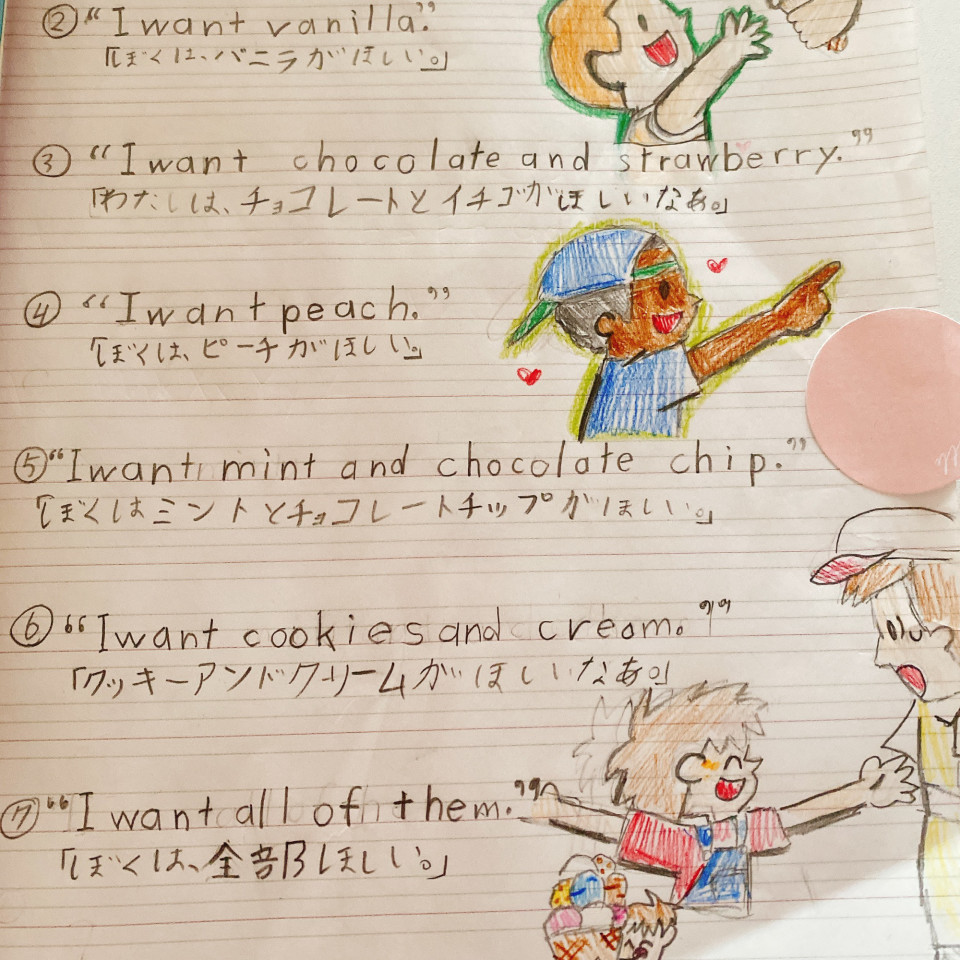 ② “I want vanilla.”
「ぼくは、バニラがほしい。」
③ “I want chocolate and strawberry.”
「わたしは、チョコレートとイチゴがほしいなあ。」
④ “I want peach.”
「ぼくは、ピーチがほしい。」
⑤ “I want mint and chocolate chip.”
「ぼくはミントとチョコレートチップがほしい。」
⑥ “I want cookies and cream.”
「クッキーアンドクリームがほしいなあ。」
⑦ “I want all of them.”
「ぼくは、全部ほしい。」